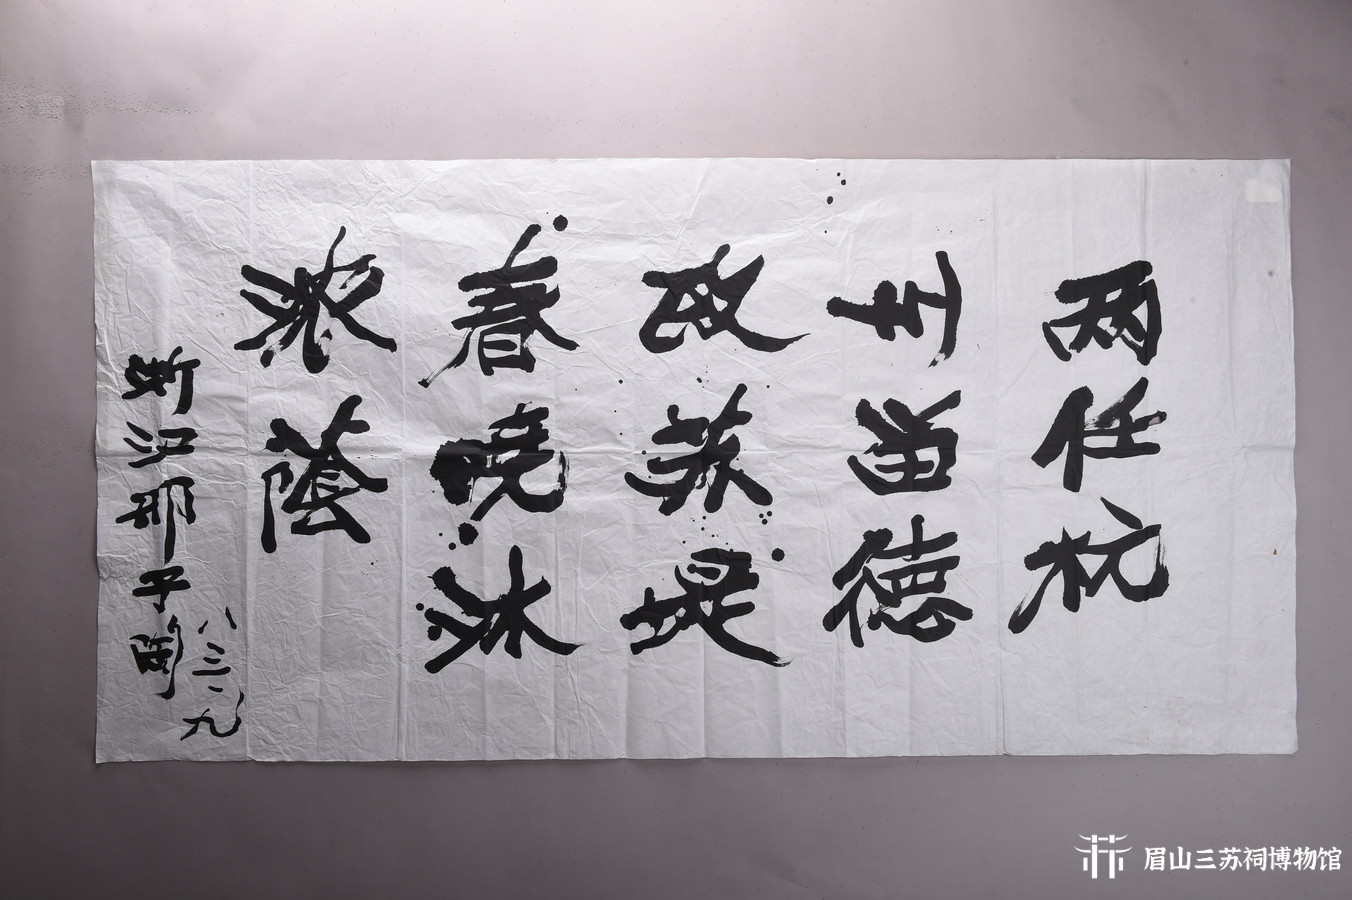 两任杭
州留德
政苏堤
春晓沐
浓蔭
浙江邢子陶
八三.九
眉山三苏祠博物馆